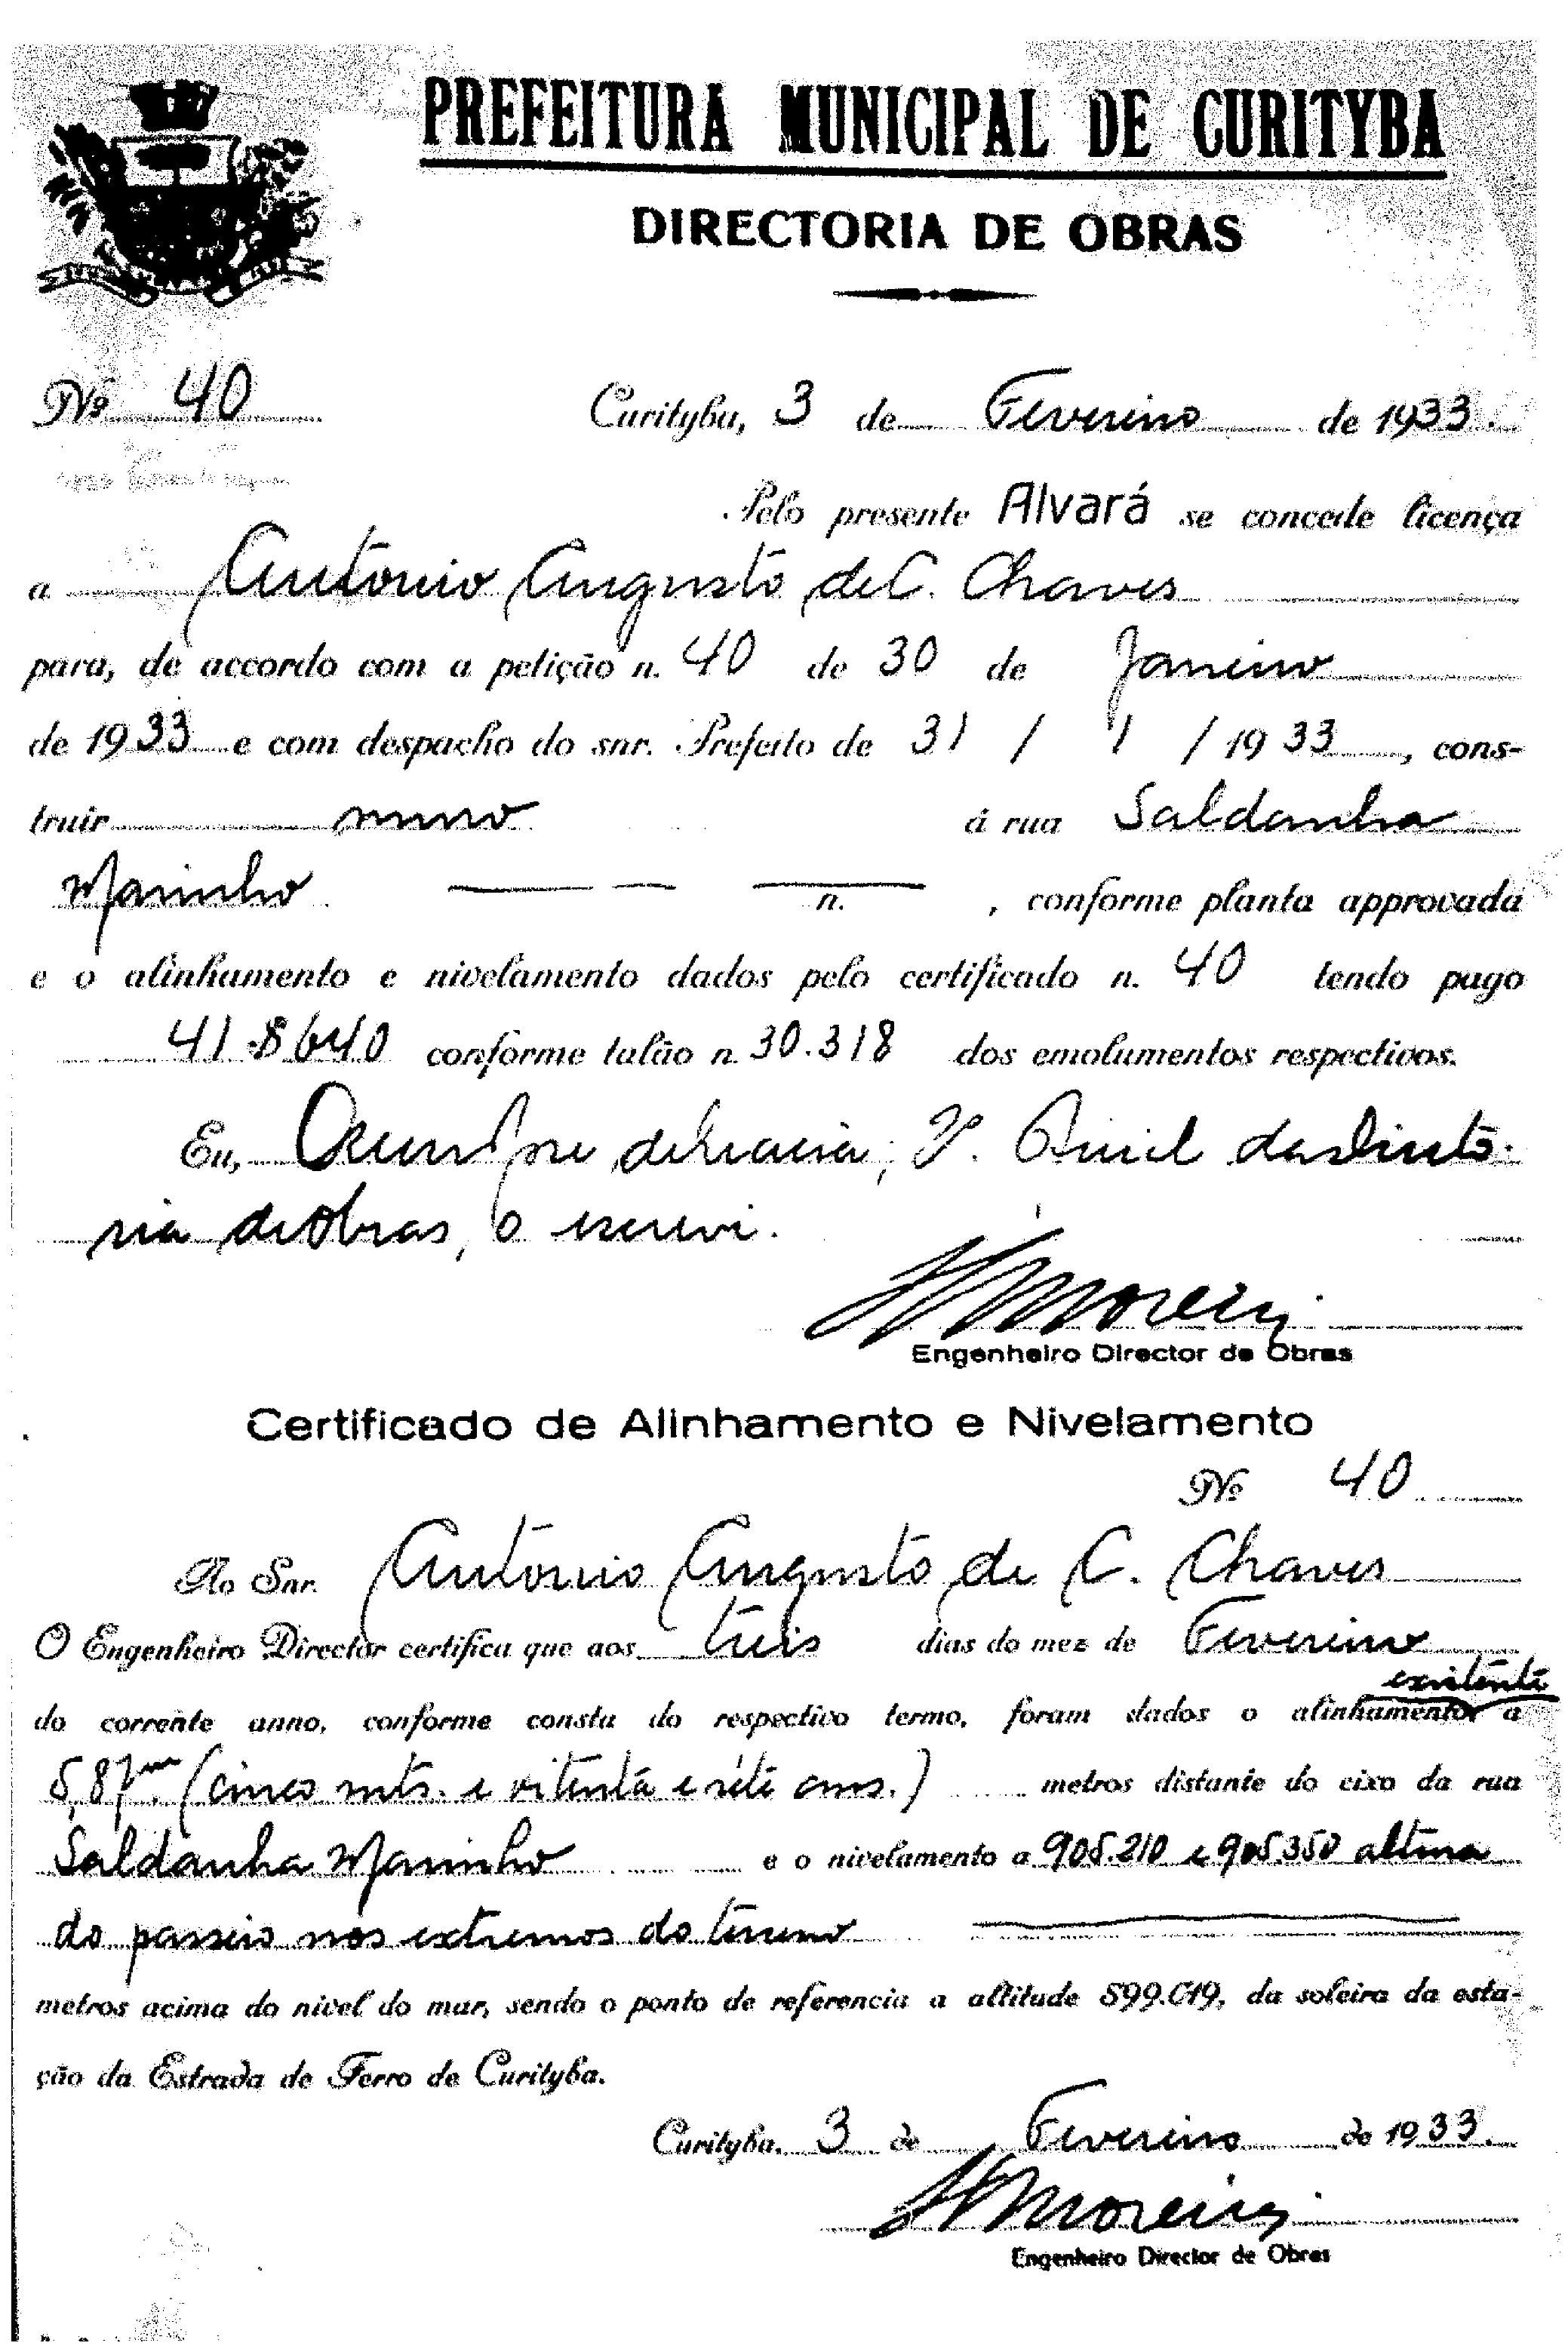 PREFEITURA MUNICIPAL DE CURITYBA
DIRECTORIA DE OBRAS
Nº 40
Curityba, 3 de Fevereiro de 1933.
Pelo presente Alvará se concede licença
a Antonio Augusto de C. Chaves
para, de accordo com a petição n. 40 de 30 de Janeiro
de 1933 e com despacho do snr. Prefeito de 31 / 1 / 1933, cons-
truir muro á rua Saldanha
Marinho n. , conforme planta approvada
e o alinhamento e nivelamento dados pelo certificado n. 40 tendo pago
41$640 conforme talão n. 30.318 dos emolumentos respectivos.
Eu, da Directo-
ria de Obras, o escrevi.
Moreira
Engenheiro Director de Obras
Certificado de Alinhamento e Nivelamento
Nº 40
Ao Snr. Antonio Augusto de C. Chaves
O Engenheiro Director certifica que aos treis dias do mez de Fevereiro
existente
do corrente anno, conforme consta do respectivo termo, foram dados o alinhamento a
5,87m (cinco mts. e oitenta e sete cms.) metros distante do eixo da rua
Saldanha Marinho e o nivelamento a 905.210 e 905.350 altura
do passeio nos extremos do terreno
metros acima do nivel do mar, sendo o ponto de referencia a altitude 899.019, da soleira da esta-
ção da Estrada de Ferro de Curityba.
Curityba, 3 de Fevereiro de 1933.
Moreira
Engenheiro Director de Obras